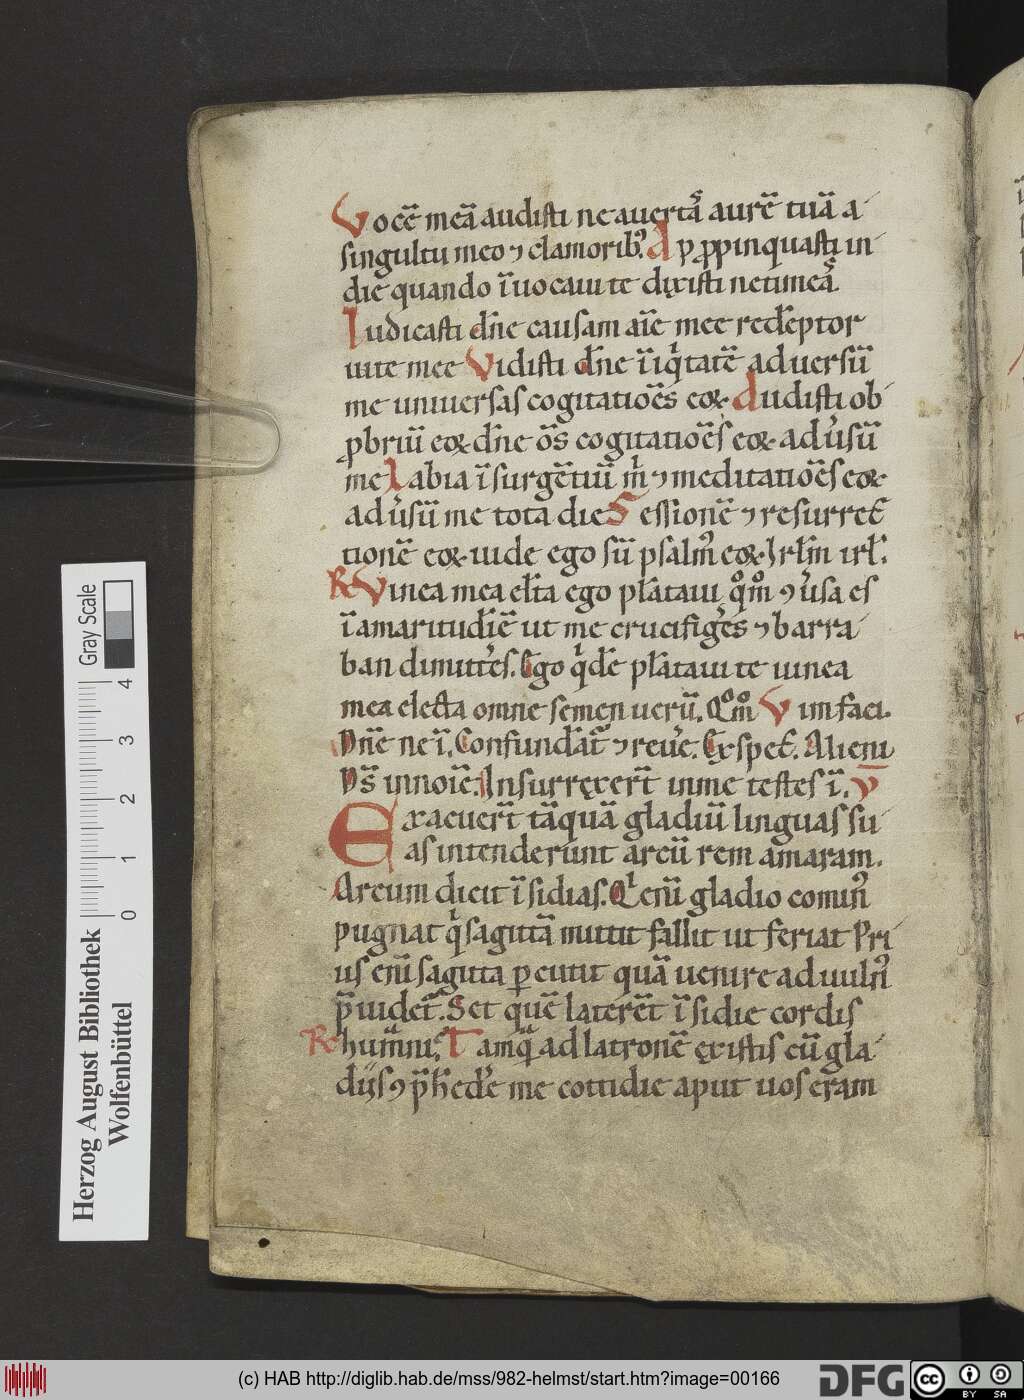 Vocē meā audisti ne auertas aurē tuā a
singultu meo ⁊ clamorib; Appropinquasti in
die quando īuocaui te dixisti ne timeas
Iudicasti dn̄e causam aīe mee redēptor
uite mee Vidisti dn̄e īiqⁱtatē aduersū
me uniuersas cogitatiōes eoꝝ Audisti ob
ꝓbriū eoꝝ dn̄e ōs cogitatiōes eoꝝ adu̓sū
me Labia īsurgētiū m̄ ⁊ meditatiōes eoꝝ
adu̓sū me tota die Sessionē ⁊ resurrec
tionē eoꝝ uide ego sū psalm̄ eoꝝ Irl̄m irl̄.
R Vinea mea elc̄ta ego plātaui qͦmͦ ⁊u̓sa es
ī amaritudīē ut me crucifiges ⁊ barra
ban dimittēs. Ego qⁱdē plātaui te uinea
mea electa omne semen uerū. Qͦmͦ V im faci.
Dn̄e ne ī. Confundāt ⁊ reue. Exspec. Alieni
Ds̄ in noīe. Insurrexert̄ in me testes ī. V
Exacuert̄ tāquā gladiū linguas su
as intenderunt arcū rem amaram.
Arcum dicit īsidias. Qⁱ enī gladio comin̓
pugnat qⁱ sagittā mittit fallit ut feriat Pri
us enī sagitta ꝑcutit quā uenire ad uuln̓
p̄uidet̄. Set quē laterēt īsidie cordis
R humāni. T amq̄ ad latronē existis cū gla
dijs ⁊ p̄hēdē me cottidie aput uos eram
Herzog August Bibliothek
Wolfenbüttel
0 1 2 3 4
Gray Scale
(c) HAB http://diglib.hab.de/mss/982-helmst/start.htm?image=00166
DFG
cc BY SA